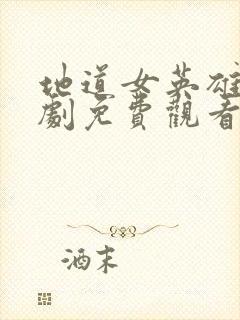 地道女英雄
劇免費觀看
酒末